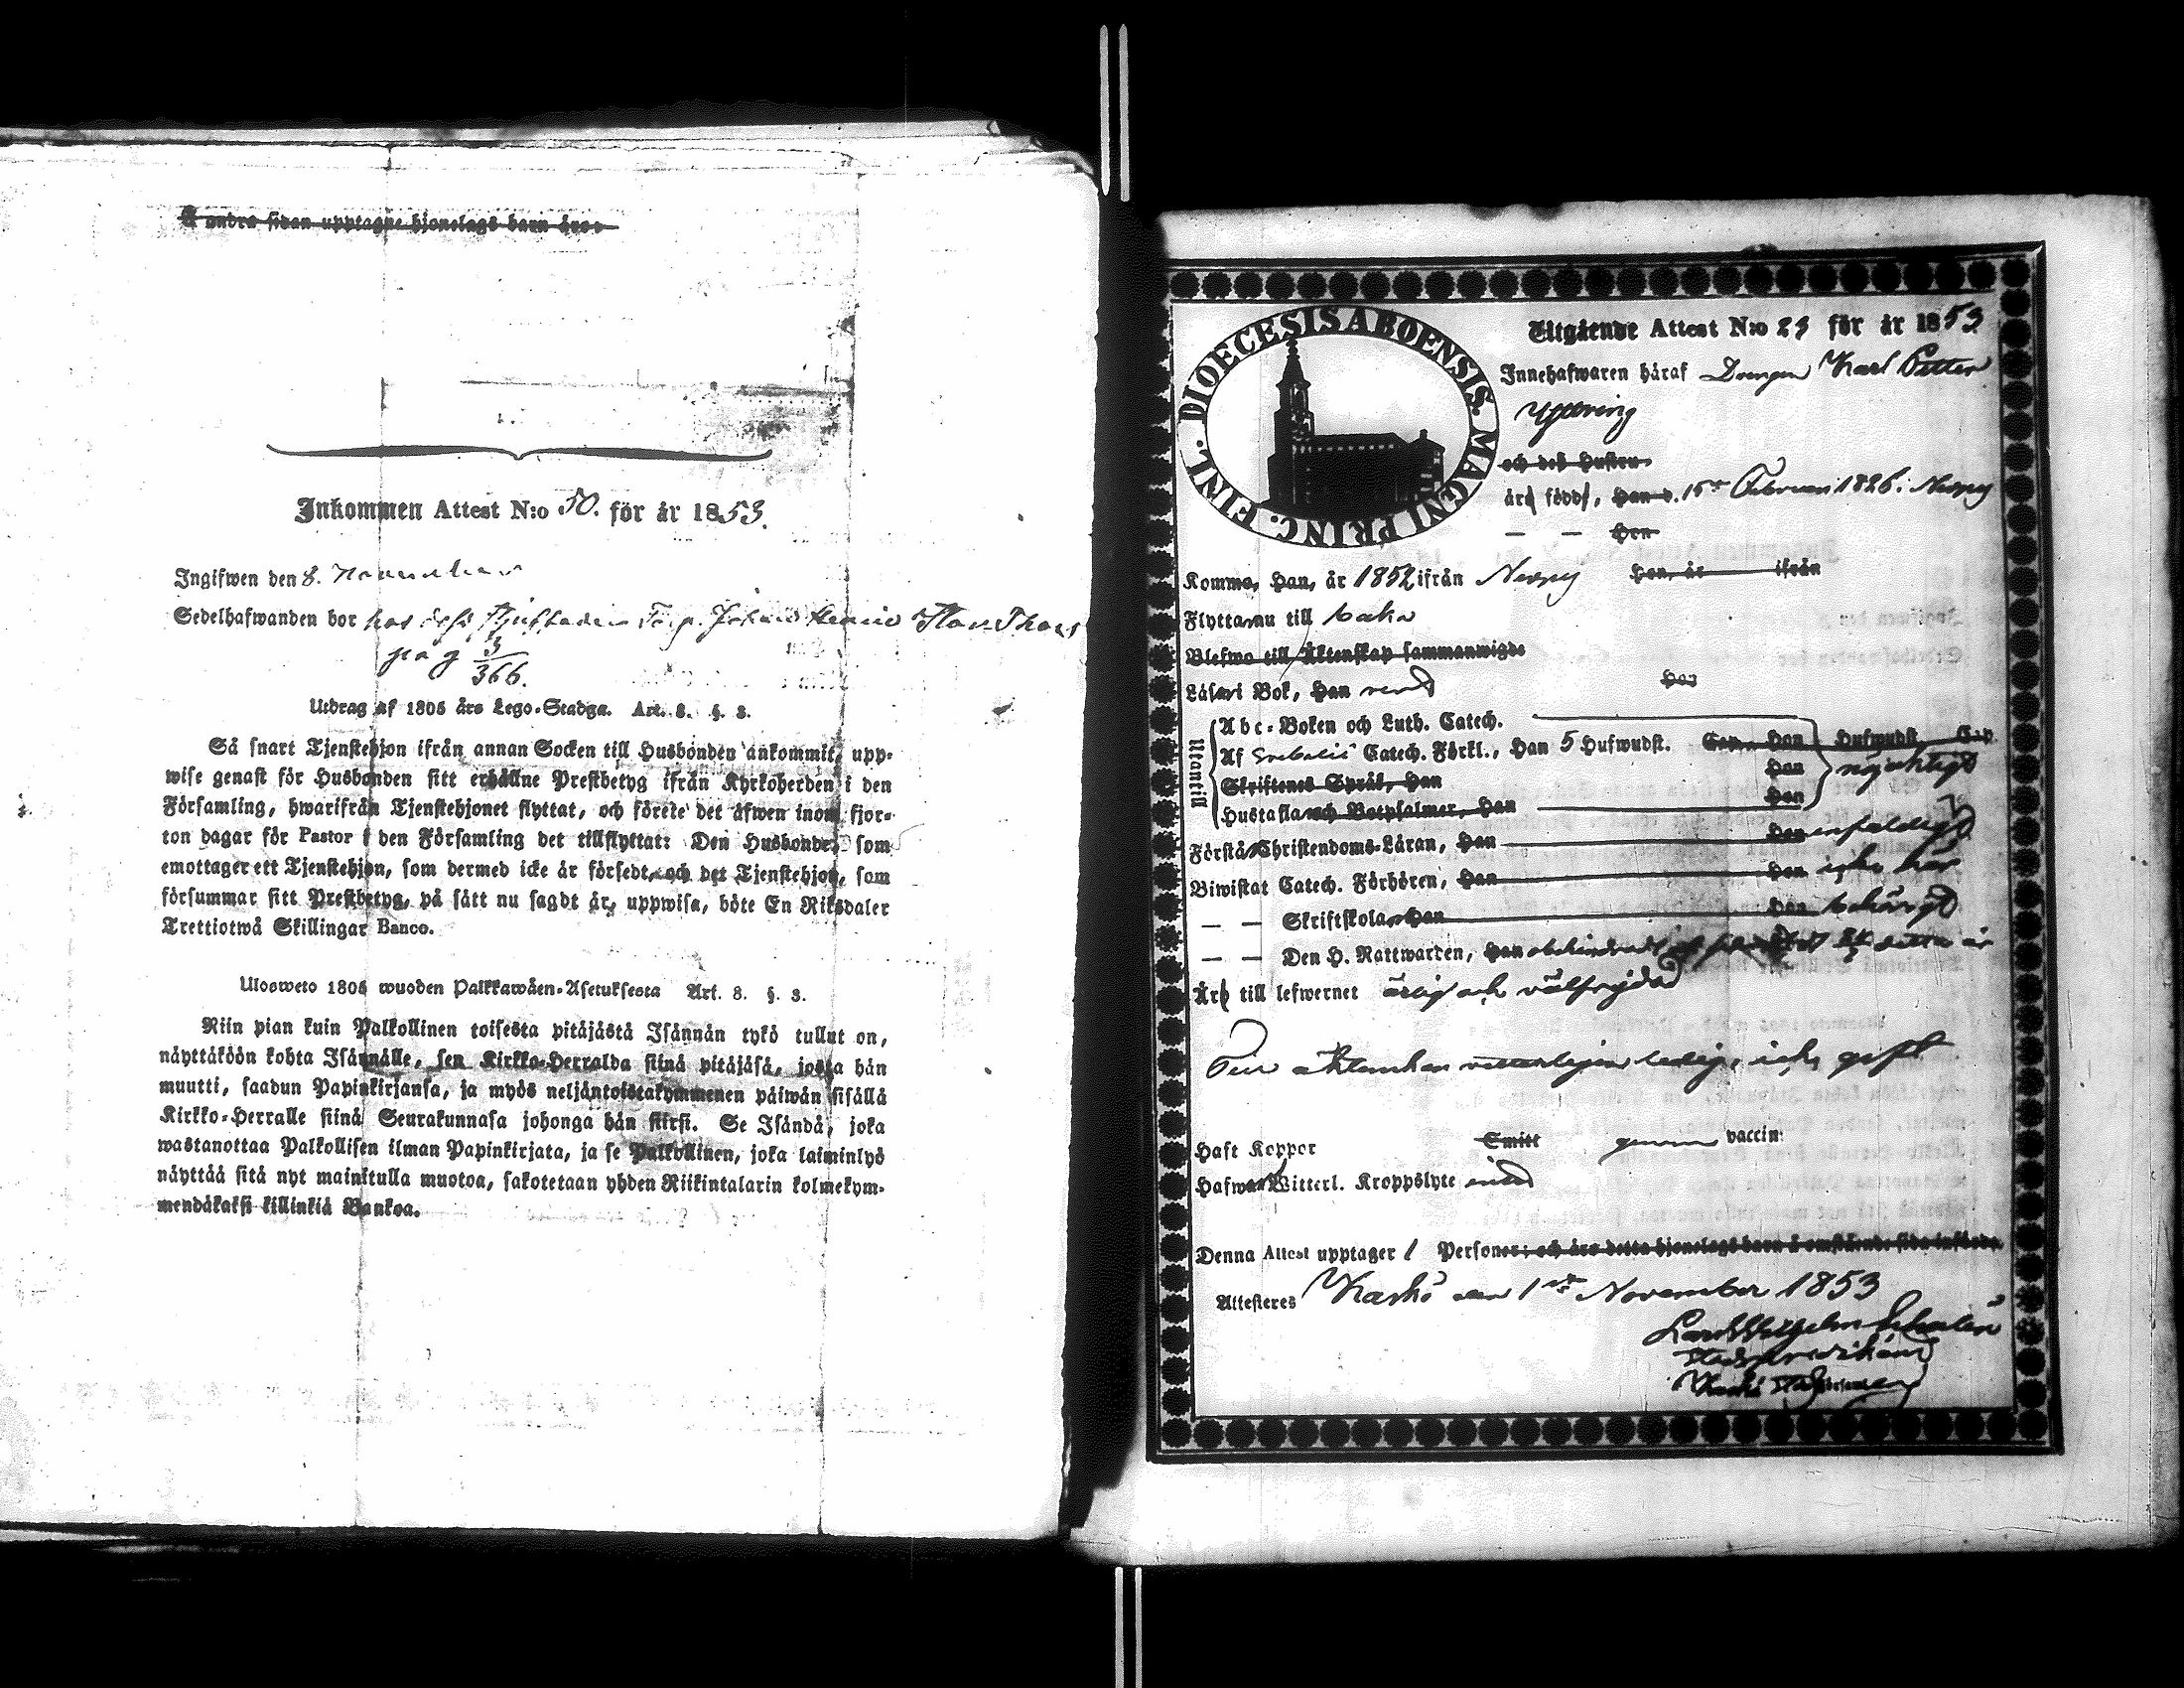 Å andra sidan upptagne hjonelags barn äro:
Inkommen Attest N:o 50. för år 1853.
Ingifwen den 8. November
Sedelhafwanden bor hos
pag 3/366.
Utdrag af 1805 års Lego-Stadga. Art. 8. §. 3.
Så snart Tjenstehjon ifrån annan Socken till Husbonden ankommit, upp-
wise genast för Husbonden sitt erhållne Prestbetyg ifrån Kyrkoherden i den
Församling, hwarifrån Tjenstehjonet flyttat, och förete det äfwen inom fjor-
ton dagar för Pastor i den Församling det tillflyttat: Den Husbonde, som
emottager ett Tjenstehjon, som dermed icke är försedt, och det Tjenstehjon, som
försummar sitt Prestbetyg, på sätt nu sagdt är, uppwisa, böte En Riksdaler
Trettiotwå Skillingar Banco.
Ulosweto 1805 wuoden Palkkawäen-Asetuksesta Art. 8. §. 3.
Niin pian kuin Palkollinen toisesta pitäjästä Isännän tykö tullut on,
näyttäköön kohta Isännälle, sen Kirkko-Herralda siinä pitäjäsä, josta hän
muutti, saadun Papinkirjansa, ja myös neljäntoistakymmenen päiwän sisällä
Kirkko-Herralle siinä Seurakunnasa johonga hän siirsi. Se Isändä, joka
wastanottaa Palkollisen ilman Papinkirjata, ja se Palkollinen, joka laiminlyö
näyttää sitä nyt mainitulla muotoa, sakotetaan yhden Riikintalarin kolmekym-
mendäkaksi killinkiä Bankoa.
DIOECESIS ABOENSIS. MAGNI PRINC. FINL.
Utgående Attest N:o 23 för år 1853
Innehafwaren häraf Drengen Karl Petter
och dess Hustru
äro född, Han d. 15de Februari 1826 i Nerpes
— — Hon
Komma, Han, år 1852 ifrån Nerpes Hon, år ifrån
Flyttar nu till baka
Blefwo till Äktenskap sammanwigde
Läser i Bok, Han Hon
Utantill
Abc-Boken och Luth. Catech.
Af Svebelii Catech. Förkl., Han 5 Hufwudst. Cap. Hon Hufwudst. Cap
Skriftenes Språk, Han Hon nöjaktigt
Hustaflan och Botpsalmer, Han Hon
Förstår Christendoms-Läran, Han Hon enfaldigt
Biwistat Catech. Förhören, Han Hon icke här
— — Skriftskola, Han Hon behörigt
— — Den H. Nattwarden, Han obehindradt detta år
Äro till lefwernet ärlig och välfrejdad
Till äktenskap veterligen ledig, icke gift
Haft Koppor Smitt genom vaccin:
Hafwa Witterl. Kroppslyte intet
Denna Attest upptager 1 Personer; och äro detta hjonelags barn å omstående sida införde.
Attesteres Kaskö den 1sta November 1853
Stadspredikant